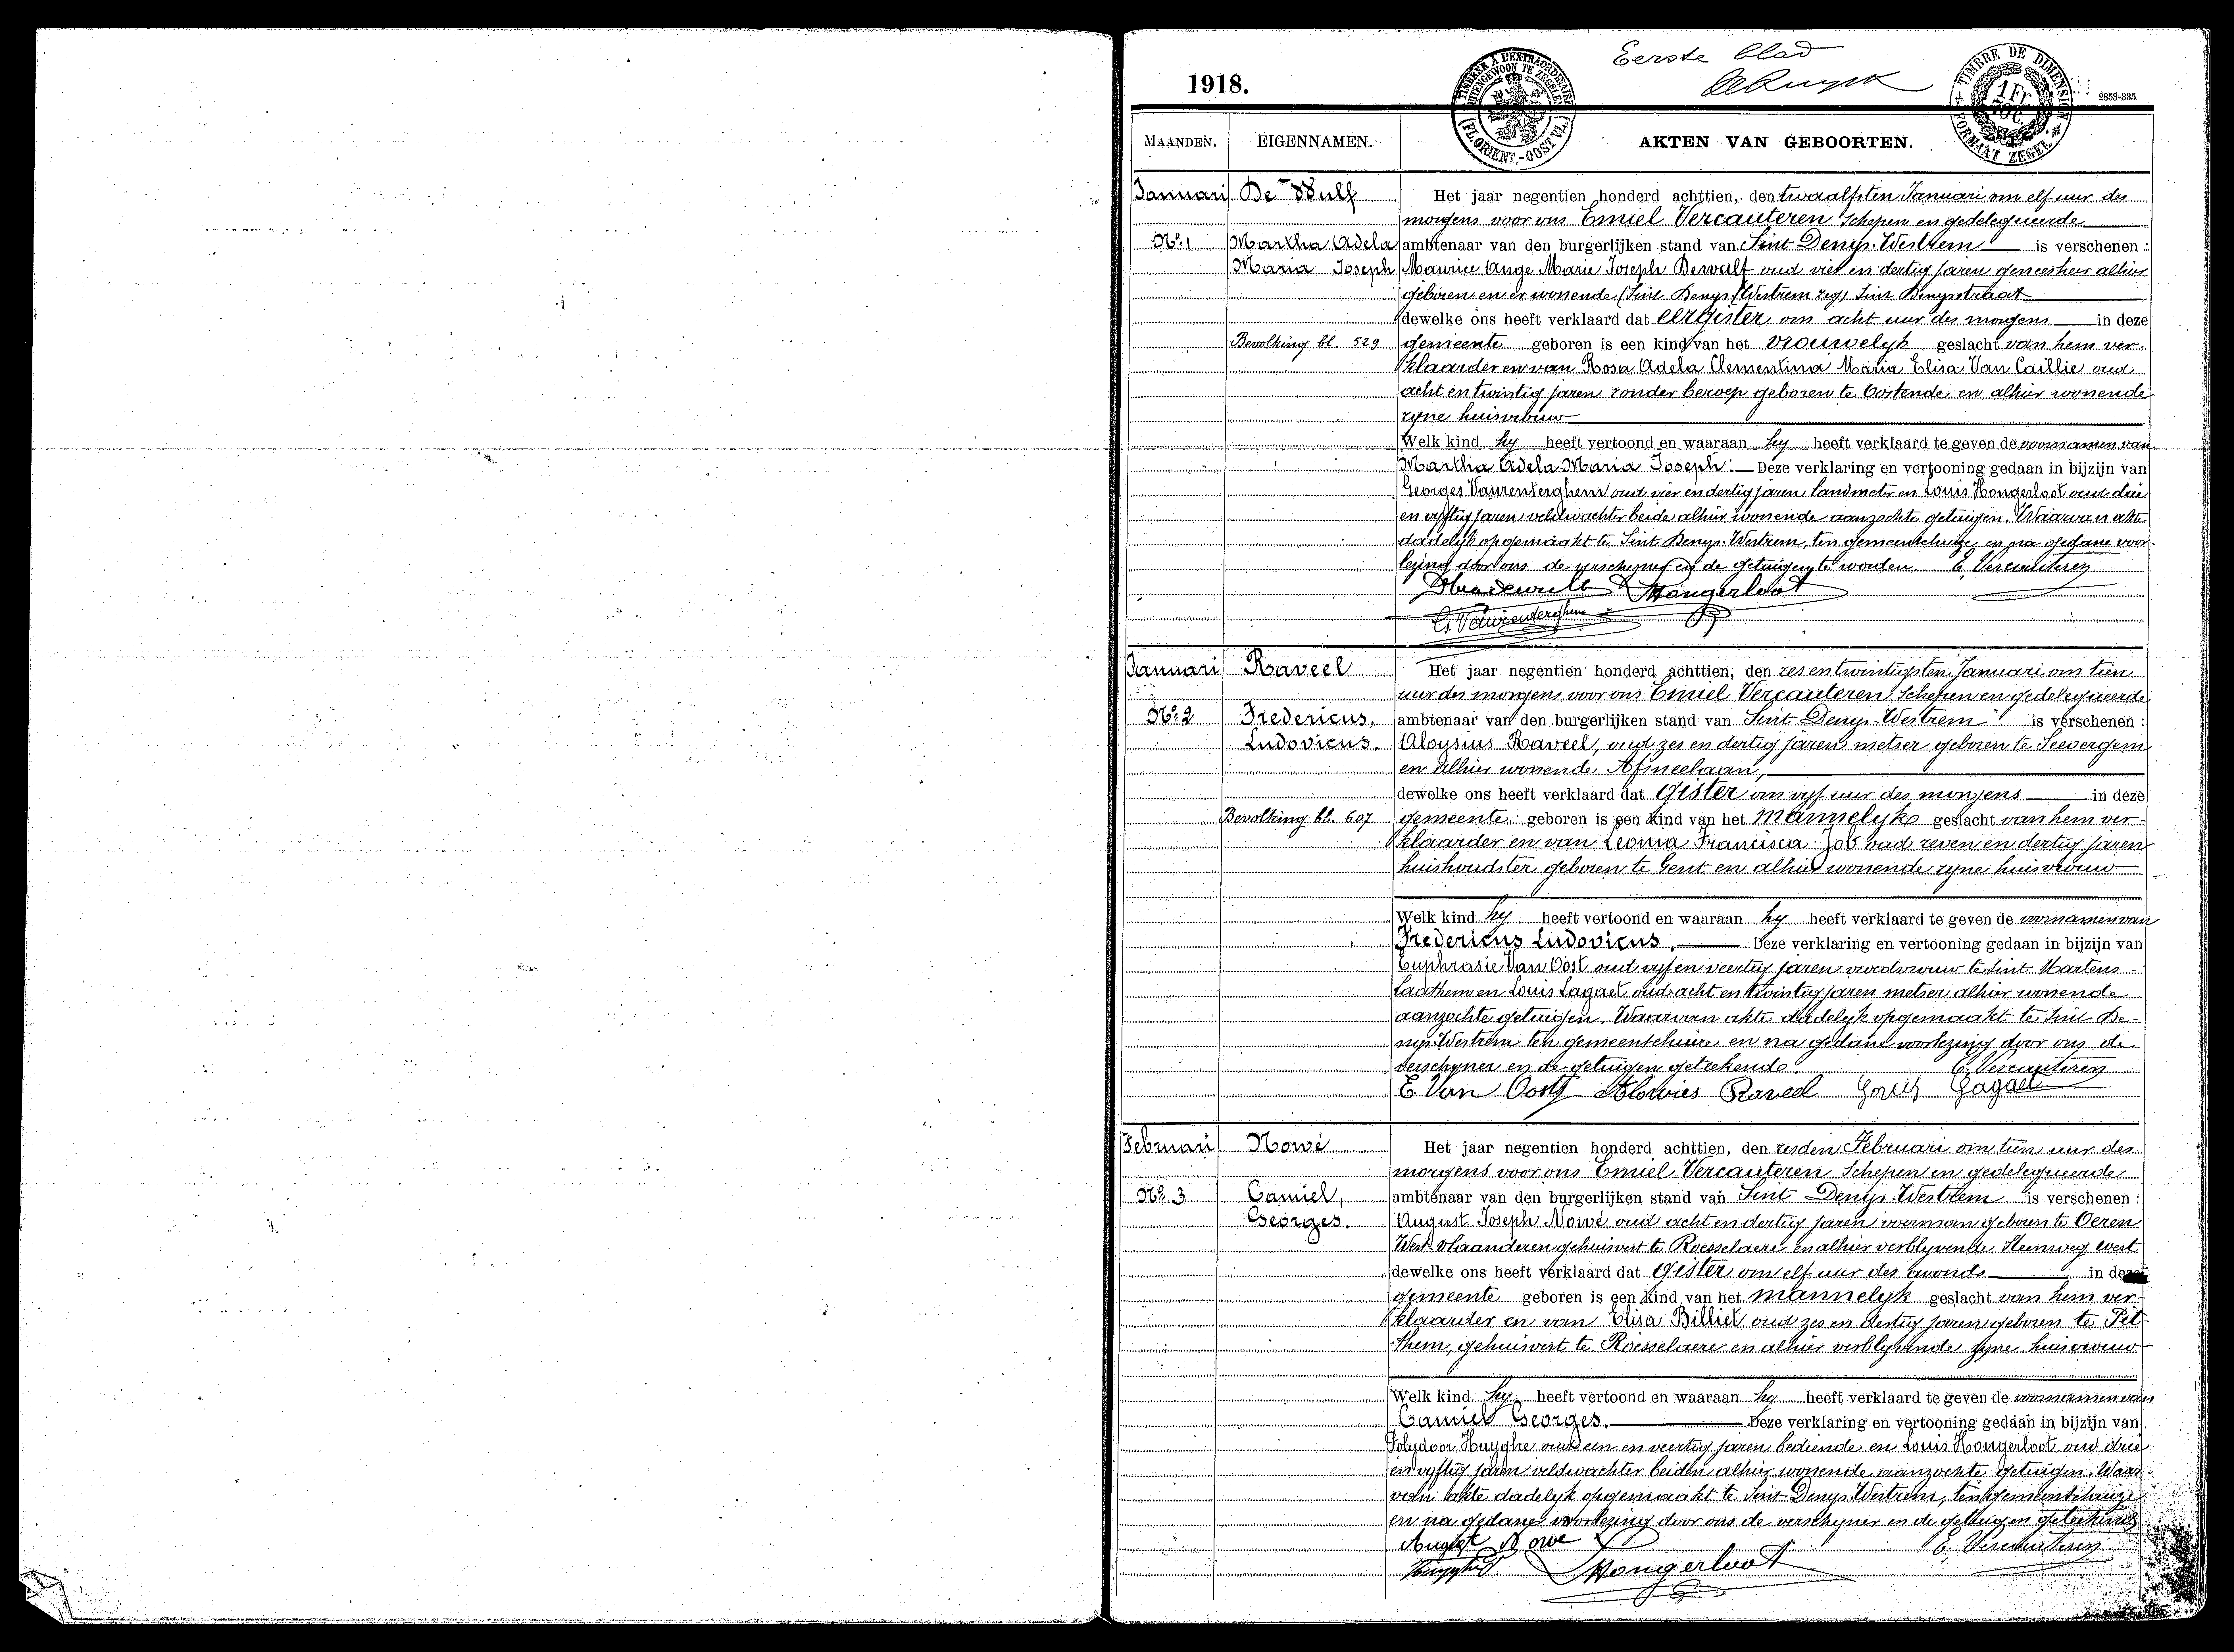 Eerste blad
1918.
TIMBRER À L'EXTRAORDINAIRE
BUITENGEWOON TE ZEGELEN
(FL. ORIENT.-OOST VL.)
TIMBRE DE DIMENSION
1 Fr.
FORMAAT ZEGEL
2853-335
MAANDEN. EIGENNAMEN. AKTEN VAN GEBOORTEN.
Januari De Wulf Het jaar negentien honderd achttien, den twaalfsten Januari om elf uur des
morgens voor ons Emiel Vercauteren Schepen en gedelegueerde
No. 1 Martha Adela ambtenaar van den burgerlijken stand van Sint Denys-Westrem is verschenen :
Maria Joseph Maurice Ange Marie Joseph Dewulf oud vier en dertig jaren geneesheer alhier
geboren en er wonende (Sint Denys Westrem zeg) Sint Denysstraat
dewelke ons heeft verklaard dat eergister om acht uur des morgens in deze
Bevolking bl. 529 gemeente geboren is een kind van het vrouwelyk geslacht van hem ver-
klaarder en van Rosa Adela Clementina Maria Elisa Van Caillie oud
acht en twintig jaren zonder beroep geboren te Oostende en alhier wonende
zyne huisvrouw
Welk kind hy heeft vertoond en waaraan hy heeft verklaard te geven de voornamen van
Martha Adela Maria Joseph. Deze verklaring en vertooning gedaan in bijzijn van
Georges Vaurenterghem oud vier en dertig jaren landmeter en Louis Hongerloot oud drie
en vyftig jaren veldwachter beide alhier wonende aanzochte getuigen. Waarvan akte
dadelyk opgemaakt te Sint Denys-Westrem, ten gemeentehuize en na gedane voor-
lezing door ons de verschyner en de getuigen te worden. E. Vercauteren
Hongerloot
Januari Raveel Het jaar negentien honderd achttien, den zes en twintigsten Januari om tien
uur des morgens voor ons Emiel Vercauteren Schepen en gedelegueerde
No. 2 Fredericus, ambtenaar van den burgerlijken stand van Sint-Denys-Westrem is verschenen :
Ludovicus. Aloysius Raveel, oud zes en dertig jaren metser geboren te Seevergem
en alhier wonende Afsneelaan,
dewelke ons heeft verklaard dat gister om vyf uur des morgens in deze
Bevolking bl. 607 gemeente geboren is een kind van het mannelyke geslacht van hem ver-
klaarder en van Leonia Francisca Job oud zeven en dertig jaren
huishoudster geboren te Gent en alhier wonende zyne huisvrouw
Welk kind hy heeft vertoond en waaraan hy heeft verklaard te geven de voornamen van
Fredericus Ludovicus. Deze verklaring en vertooning gedaan in bijzijn van
Euphrasie Van Oost oud vyf en veertig jaren vroedvrouw te Sint Martens-
Laathem en Louis Lagaet oud acht en twintig jaren metser alhier wonende
aanzochte getuigen. Waarvan akte dadelyk opgemaakt te Sint De-
nys-Westrem ten gemeentehuize en na gedane voorlezing door ons de
verschyner en de getuigen geteekend. E. Vercauteren
E Van Oost Aloÿies Raveel Louis Lagaet
Februari Nowé Het jaar negentien honderd achttien, den zesden Februari om tien uur des
morgens voor ons Emiel Vercauteren Schepen en gedelegueerde
No. 3 Camiel, ambtenaar van den burgerlijken stand van Sint-Denys-Westrem is verschenen :
Georges. August Joseph Nowé oud acht en dertig jaren voerman geboren te Oeren
West-Vlaanderen gehuisvest te Roesselaere en alhier verblyvende Steenweg west
dewelke ons heeft verklaard dat gister om elf uur des avonds in deze
gemeente geboren is een kind van het mannelyk geslacht van hem ver-
klaarder en van Elisa Billiet oud zes en dertig jaren geboren te Pit-
them, gehuisvest te Roesselaere en alhier verblyvende zyne huisvrouw
Welk kind hy heeft vertoond en waaraan hy heeft verklaard te geven de voornamen van
Camiel Georges. Deze verklaring en vertooning gedaan in bijzijn van
Polydoor Huyghe oud een en veertig jaren bediende en Louis Hongerloot oud drie
en vyftig jaren veldwachter beiden alhier wonende aanzochte getuigen. Waar-
van akte dadelyk opgemaakt te Sint-Denys-Westrem, ten gemeentehuize
en na gedane voorlezing door ons de verschyner en de getuigen geteekend
August Nowe E. Vercauteren
Huyghe Hongerloot